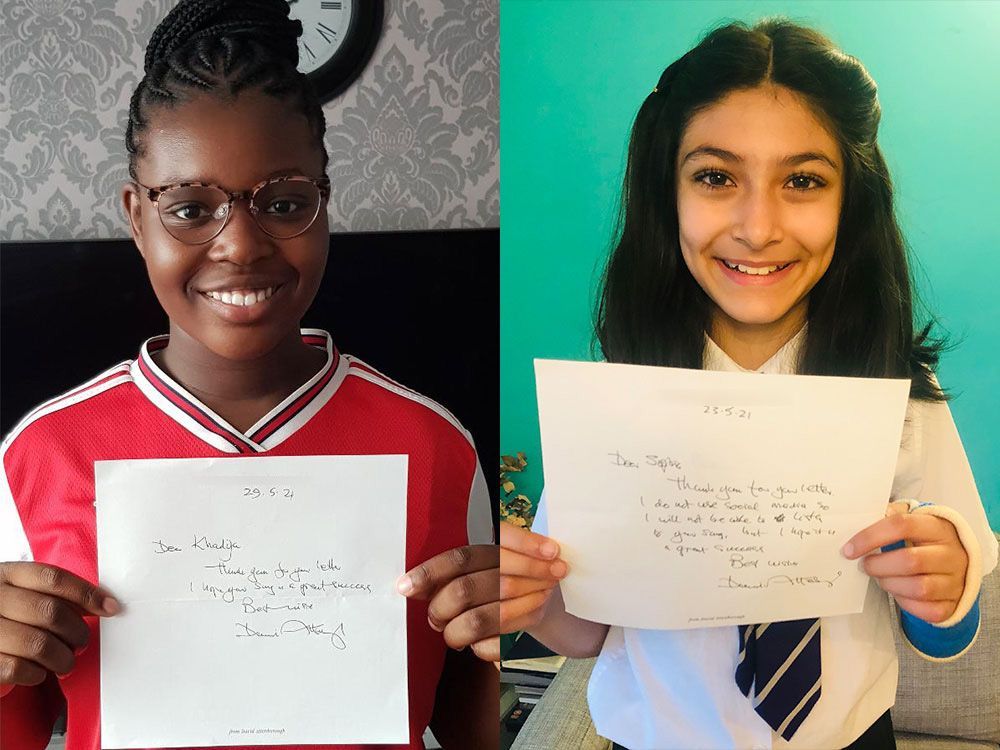 29.5.21
Dear Khadija
Thank you for your letter
I hope your song is a great success
Best wishes
David Attenborough
from David Attenborough
23.5.21
Dear Sophie
Thank you for your letter.
I do not use social media so
I will not be able to listen
to your song, but I hope it is
a great success
Best wishes
David Attenborough
from David Attenborough